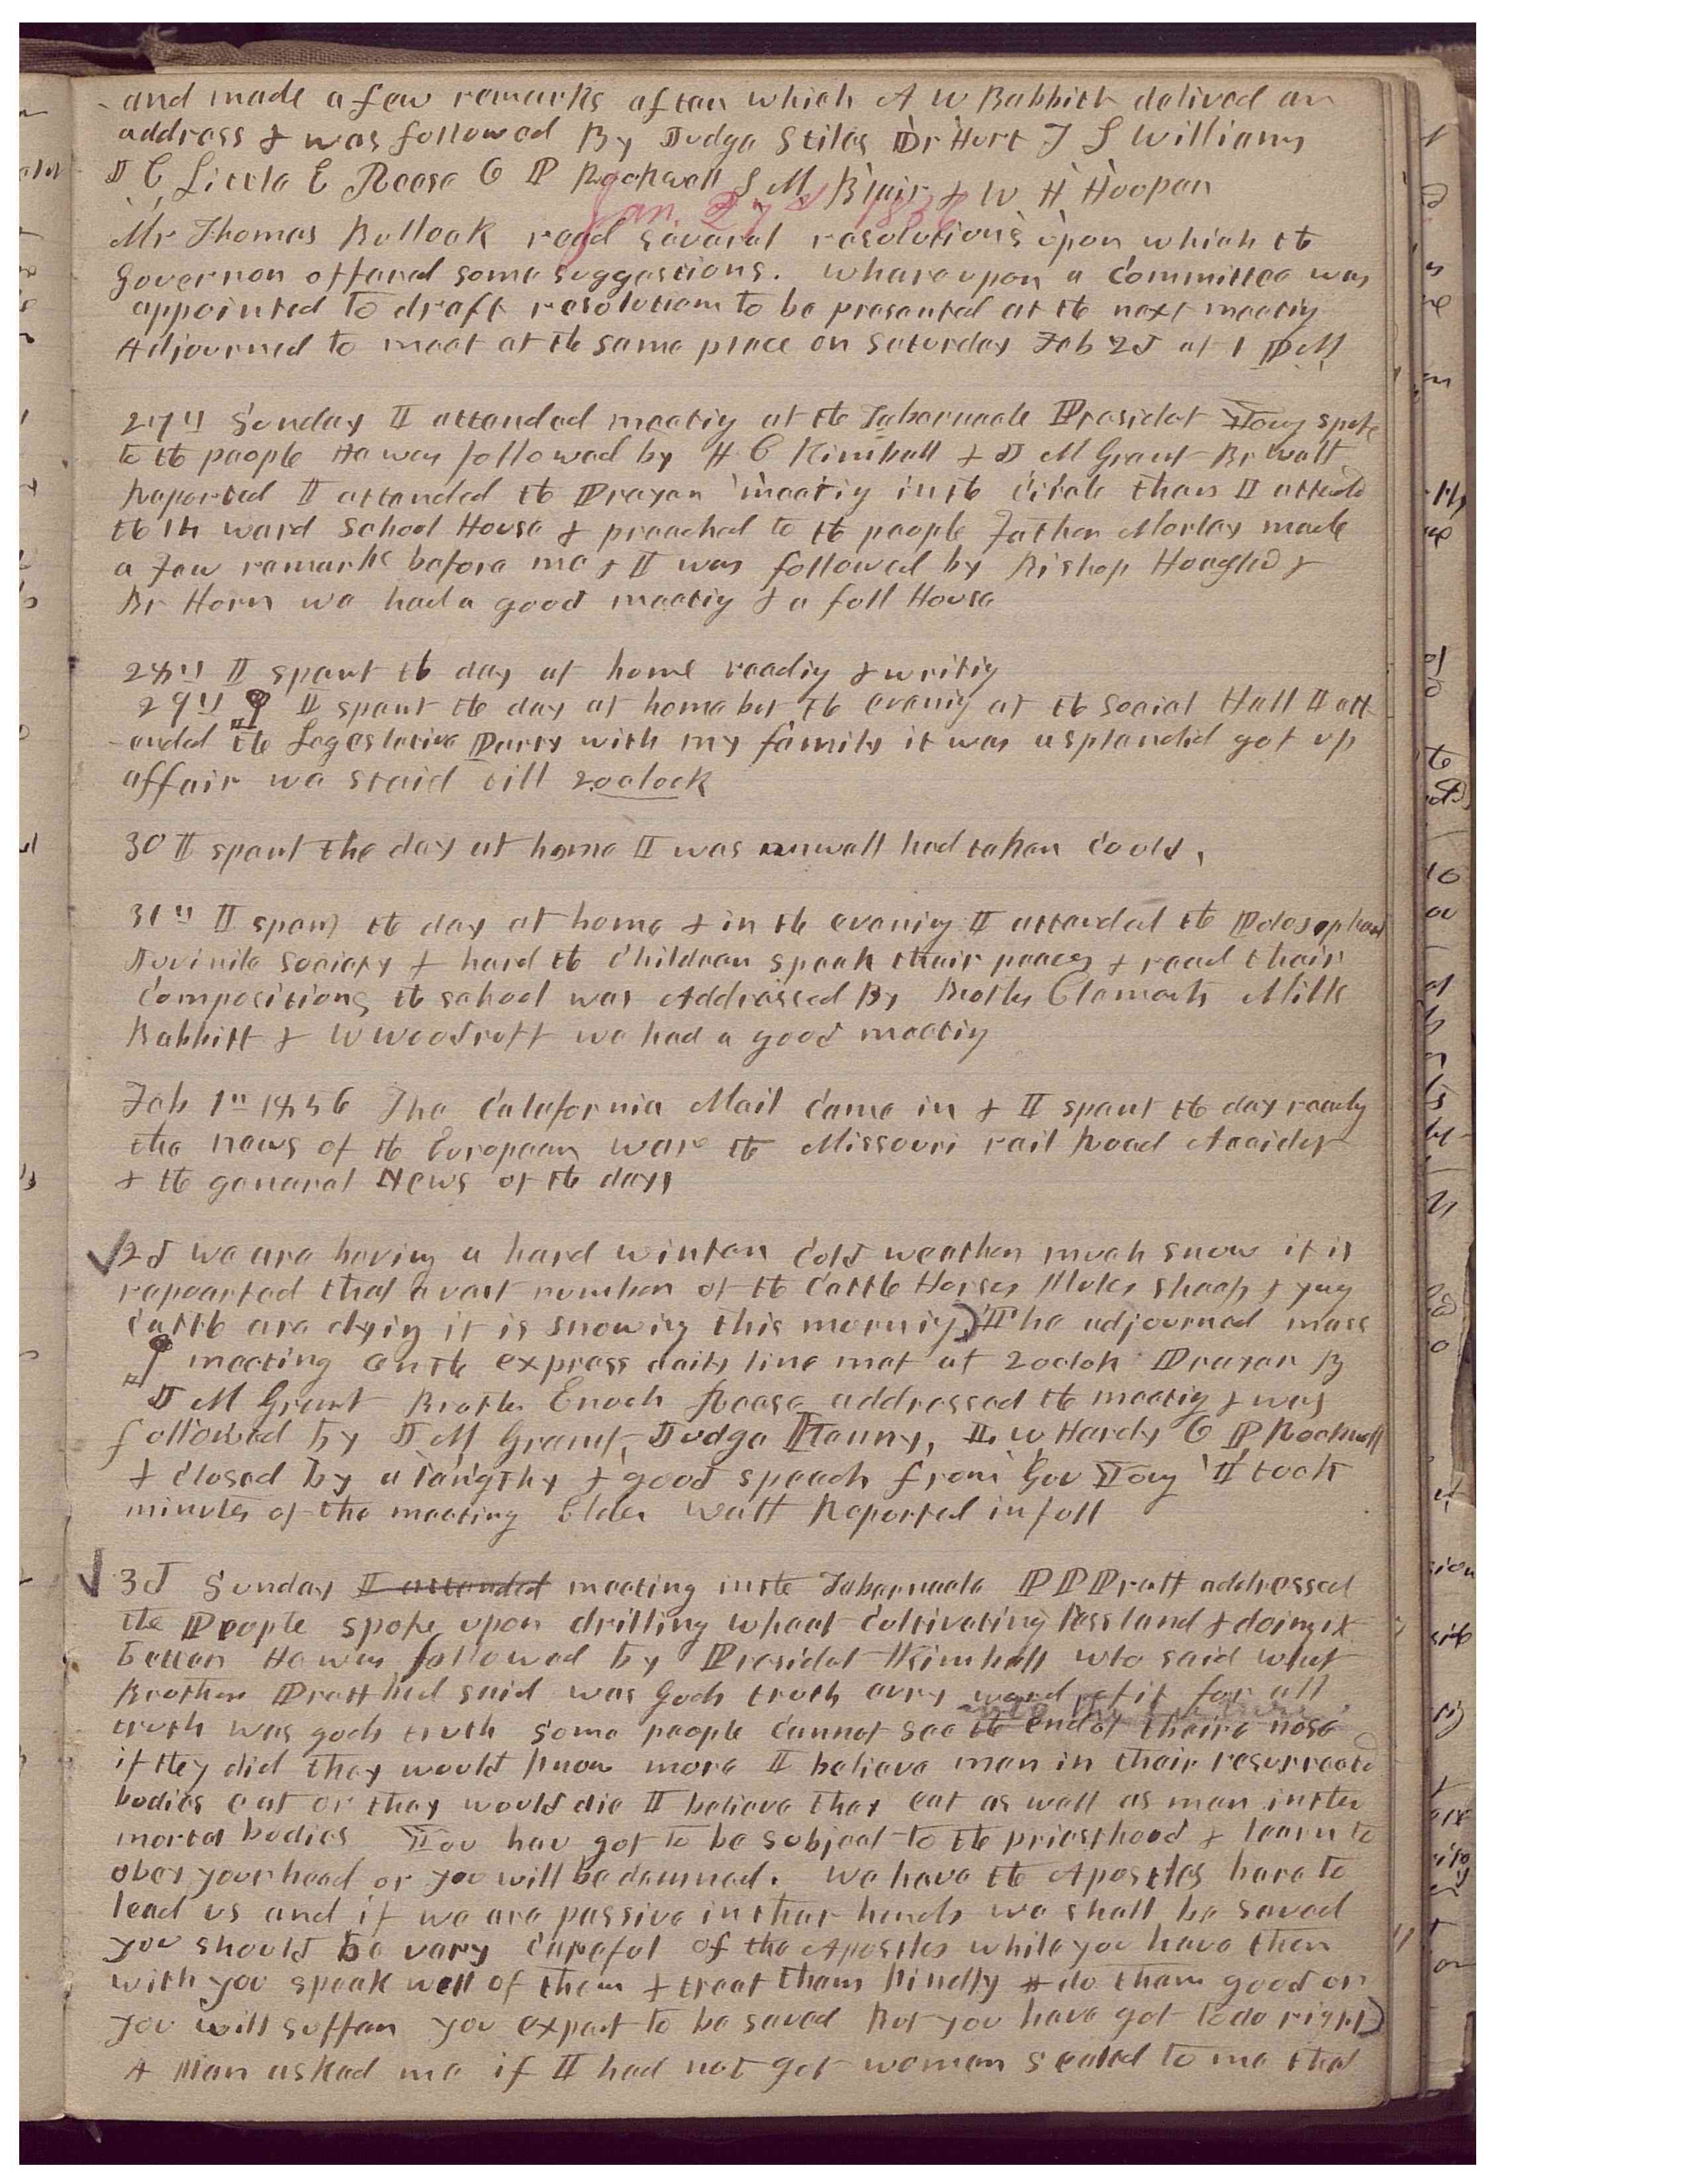 and made a few remarks after which A W Babbith delived an
address & was followed By Judge Stiles Dr Hurt T S Williams
J C Little E Reese O P Rockwell S M Blair & W H Hooper
Jan. 27th 1856
Mr Thomas Bullock read several resolutions upon which the
Governor offered some suggestions. Whareupon a Committee was
appointed to draft resolutions to be presented at the next meeting
Adjourned to meet at the same place on Saturday Feb 2d at 1 PM
27th Sunday I attended meetig at the Tabernacle Presidet Youg spoke
to the people He was followed by H C Kimball & J M Grant Br Watt
Reported I attended the Prayer meetig in the circle then I attended
the 14 ward School House & preached to the people Father Morley made
a few remarks before me & I was followed by Bishop Hoagld &
Br Horn we had a good meetig & a full House
28th I spent the day at home readig & writig
29th I spent the day at home but the evenig at the Social Hall I att
ended the Legeslative Party with my family it was a splendid got up
affair we staid till 2 oclock
30 I spent the day at home I was unwell had taken could,
31st I spent the day at home & in the evenig I attended the Pelosophean
Juvinile Society & hard the Children speak their peaces & read their
Compositions the school was Addressed By Brothers Clements Mills
Babbitt & W Woodruff we had a good meetig
Feb 1st 1856 The Calefornia Mail came in & I spent the day readig
the news of the European ware the Missouri rail Road Accidet
& the general News of the day
2d we are having a hard winter Cold weather much snow it is
repoearted that a vast number of the Cattle Horses Mules sheep & yug
cattle are dyig it is snowig this mornig The adjourned mass
meeting on the express daily line met at 2 oclok Prayer By
J M Grant Brother Enoch Reese addressed the meetig & was
followed by J M Grant, Judge Phany, L W Hardy O P Rockwell
& closed by a lengthy & good speech from Gov Youg I took
minutes of the meeting Elder Watt Reported in full
3d Sunday I attended meeting in the Tabernacle P P Pratt addressed
the People spoke upon drilling wheat cultivating less land & doing it
better He was followed by Presidet Kimball who said what
Brother Pratt had said was Gods truth evry word of it for all
truth was gods truth some people cannot see the end of theire nose
if they did they would know more I believe men in their resurrected
bodies eat or they would die I believe they eat as well as men in their
mortal bodies You hav got to be subject to the priesthood & learn to
obey your head or you will be damned. We have the Apostles here to
lead us and if we are passive in their hands we shall be saved
you should be very careful of the Apostles while you have them
with you speak well of them & treat them kindly & do them good or
you will suffer you expect to be saved But you have got to do right
A Man asked me if I had not got women sealed to me that